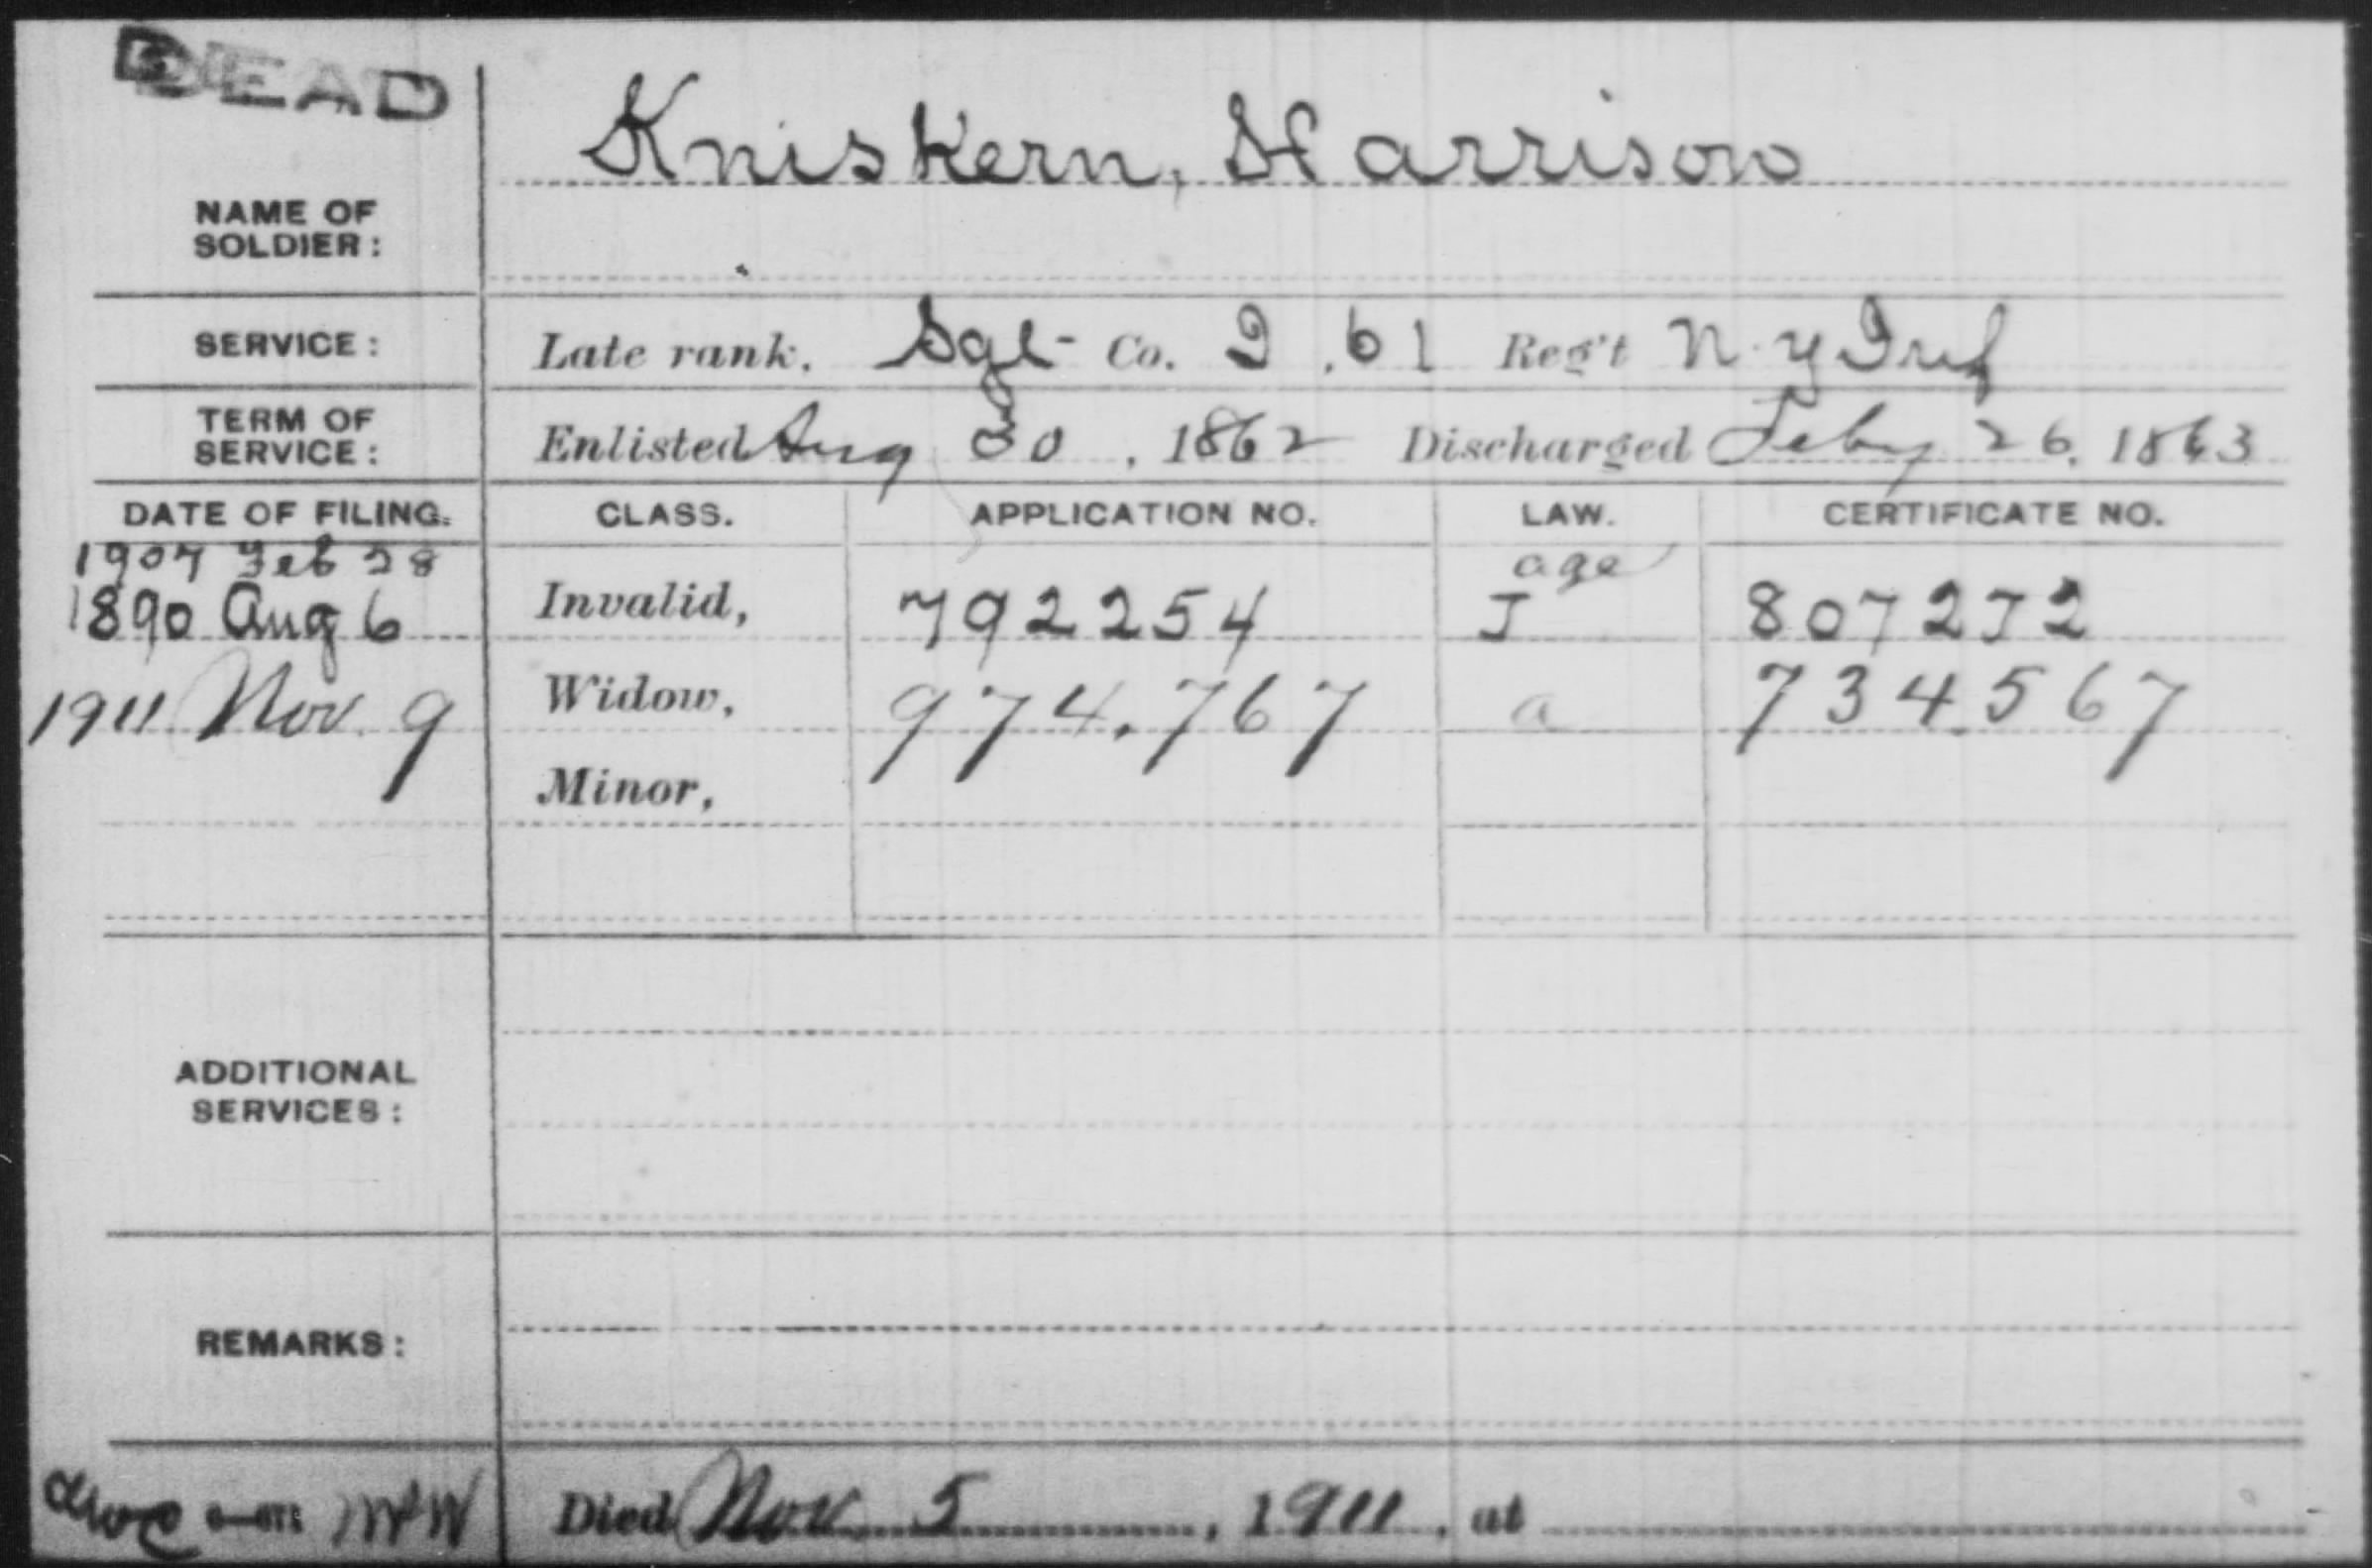 DEAD
Kniskern, Harrison
NAME OF
SOLDIER:
SERVICE: Late rank, Sgt- Co. I, 61 Reg't N.Y Inf
TERM OF
SERVICE: Enlisted Aug 30, 1862 Discharged Feby 26, 1863
DATE OF FILING. CLASS. APPLICATION NO. LAW. CERTIFICATE NO.
1907 Feb 28 age
1890 Aug 6 Invalid, 792254 J 807272
1911 Nov. 9 Widow, 974.767 a 734567
Minor,
ADDITIONAL
SERVICES:
REMARKS:
Died Nov. 5, 1911, at